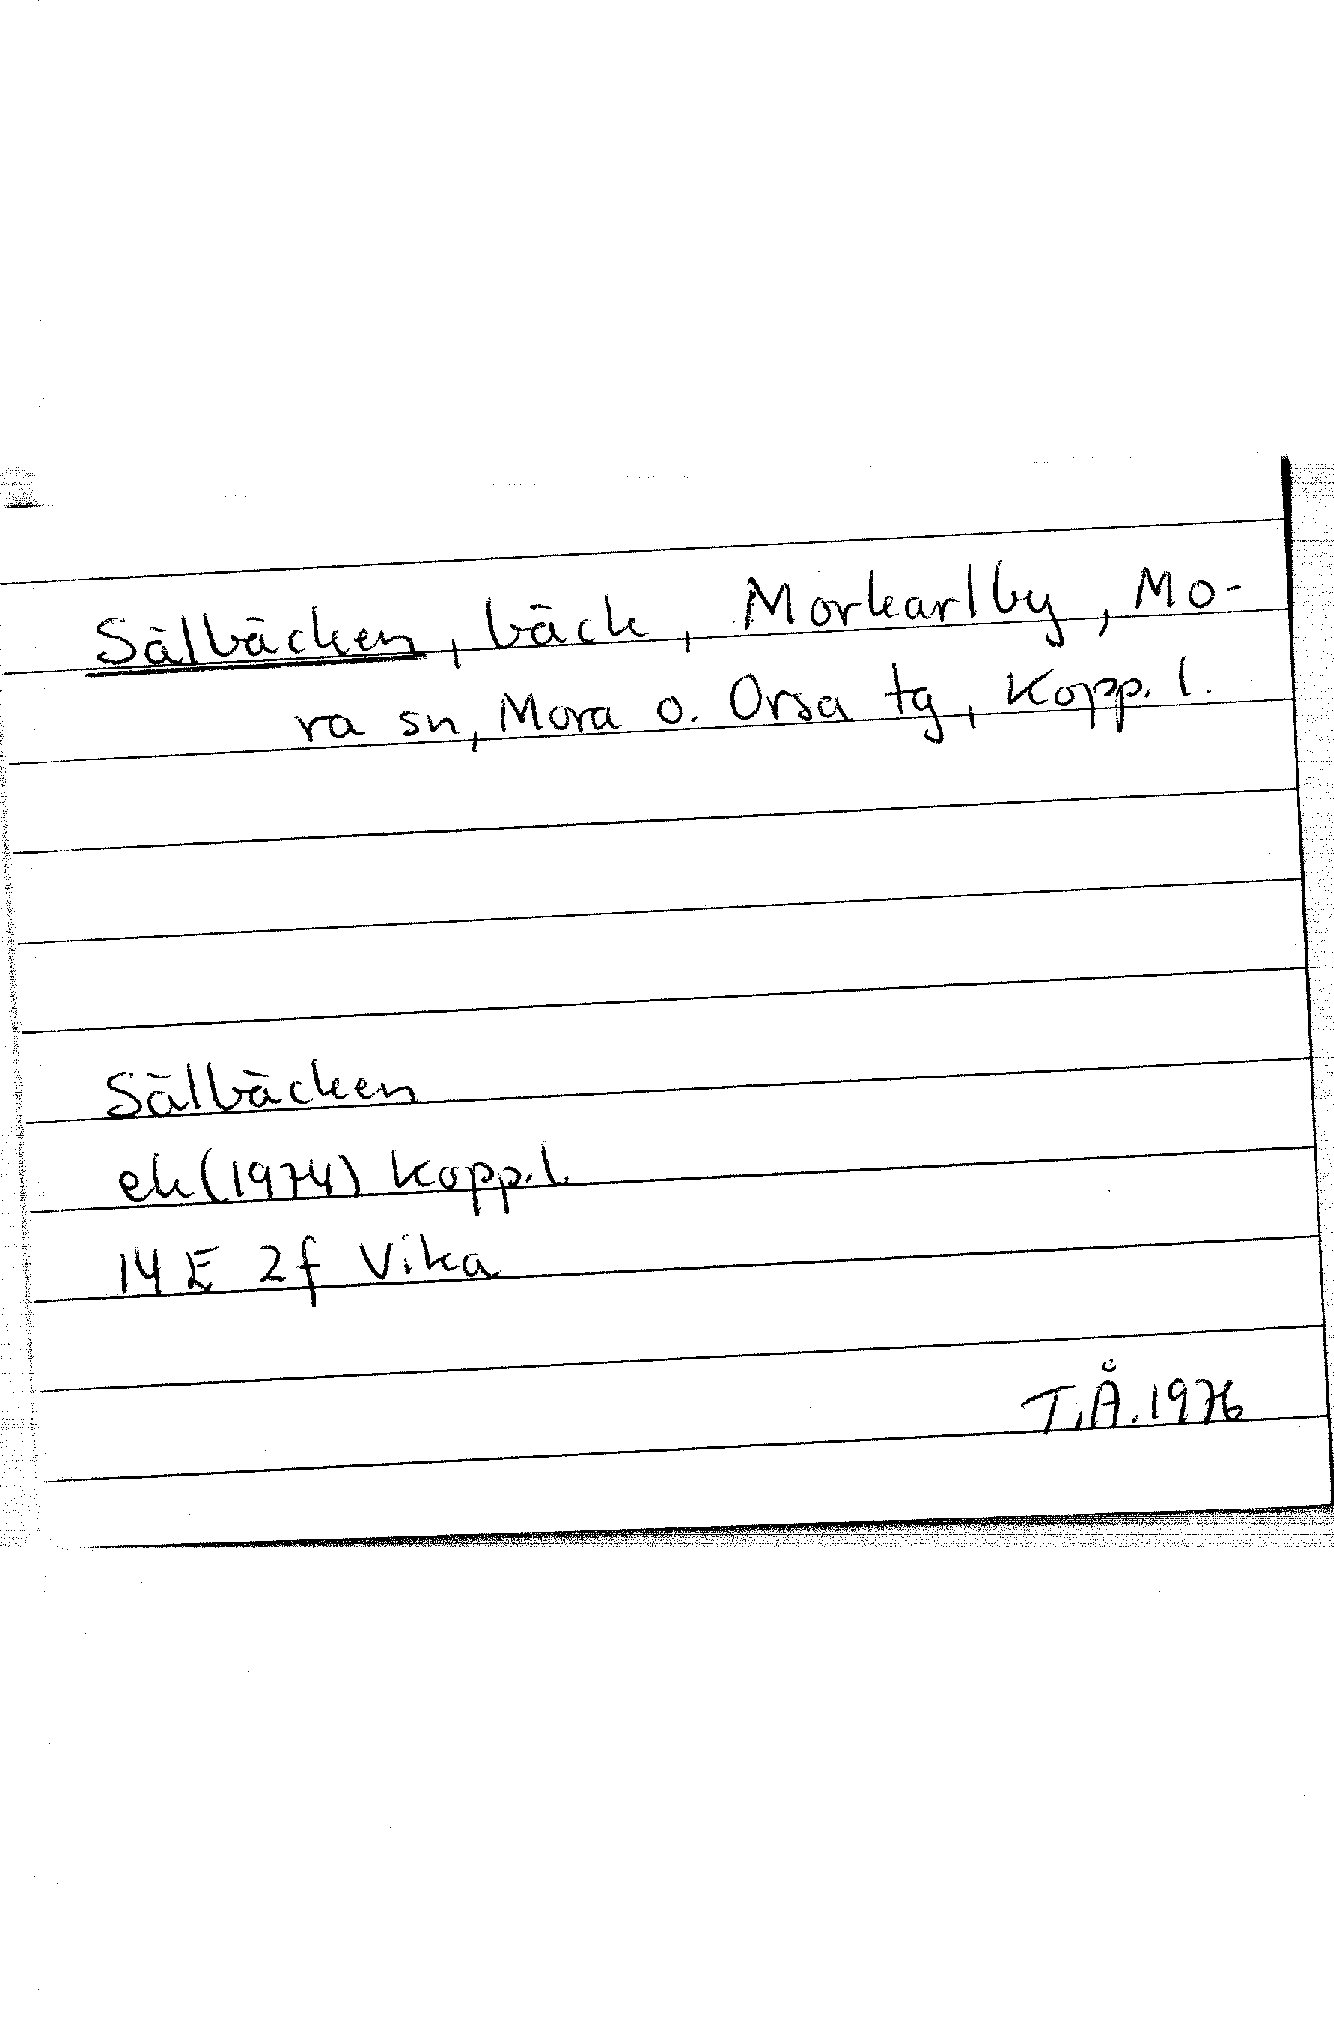 Sälbäcken, bäck, Morkarlby, Mo-
ra sn, Mora o. Orsa tg, Kopp. l.
Sälbäcken
ek (1974) Kopp. l.
14 E 2f Vika
T.Å. 1976